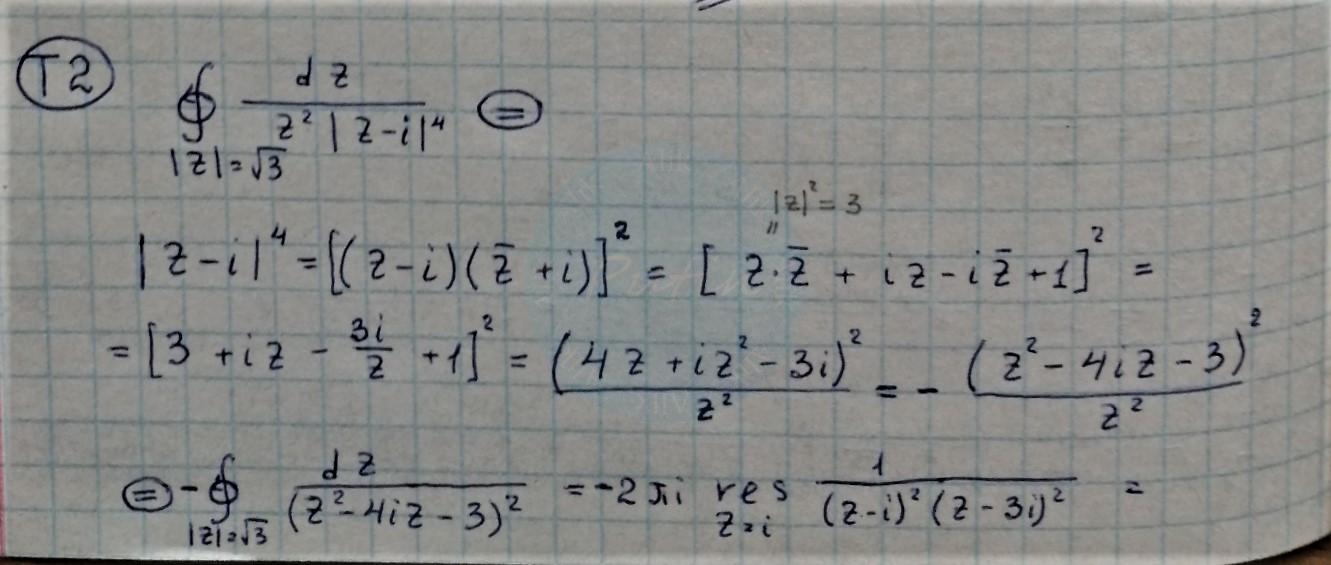 T2 ∮_{|z|=√3} dz / (z² |z-i|⁴) ⊜
|z|² = 3
|z-i|⁴ = [(z-i)(z̄+i)]² = [z·z̄ + iz - iz̄ + 1]² =
= [3 + iz - 3i/z + 1]² = (4z + iz² - 3i)² / z² = - (z² - 4iz - 3)² / z²
⊜ - ∮_{|z|=√3} dz / (z² - 4iz - 3)² = -2πi res_{z=i} 1 / ((z-i)² (z-3i)²) =